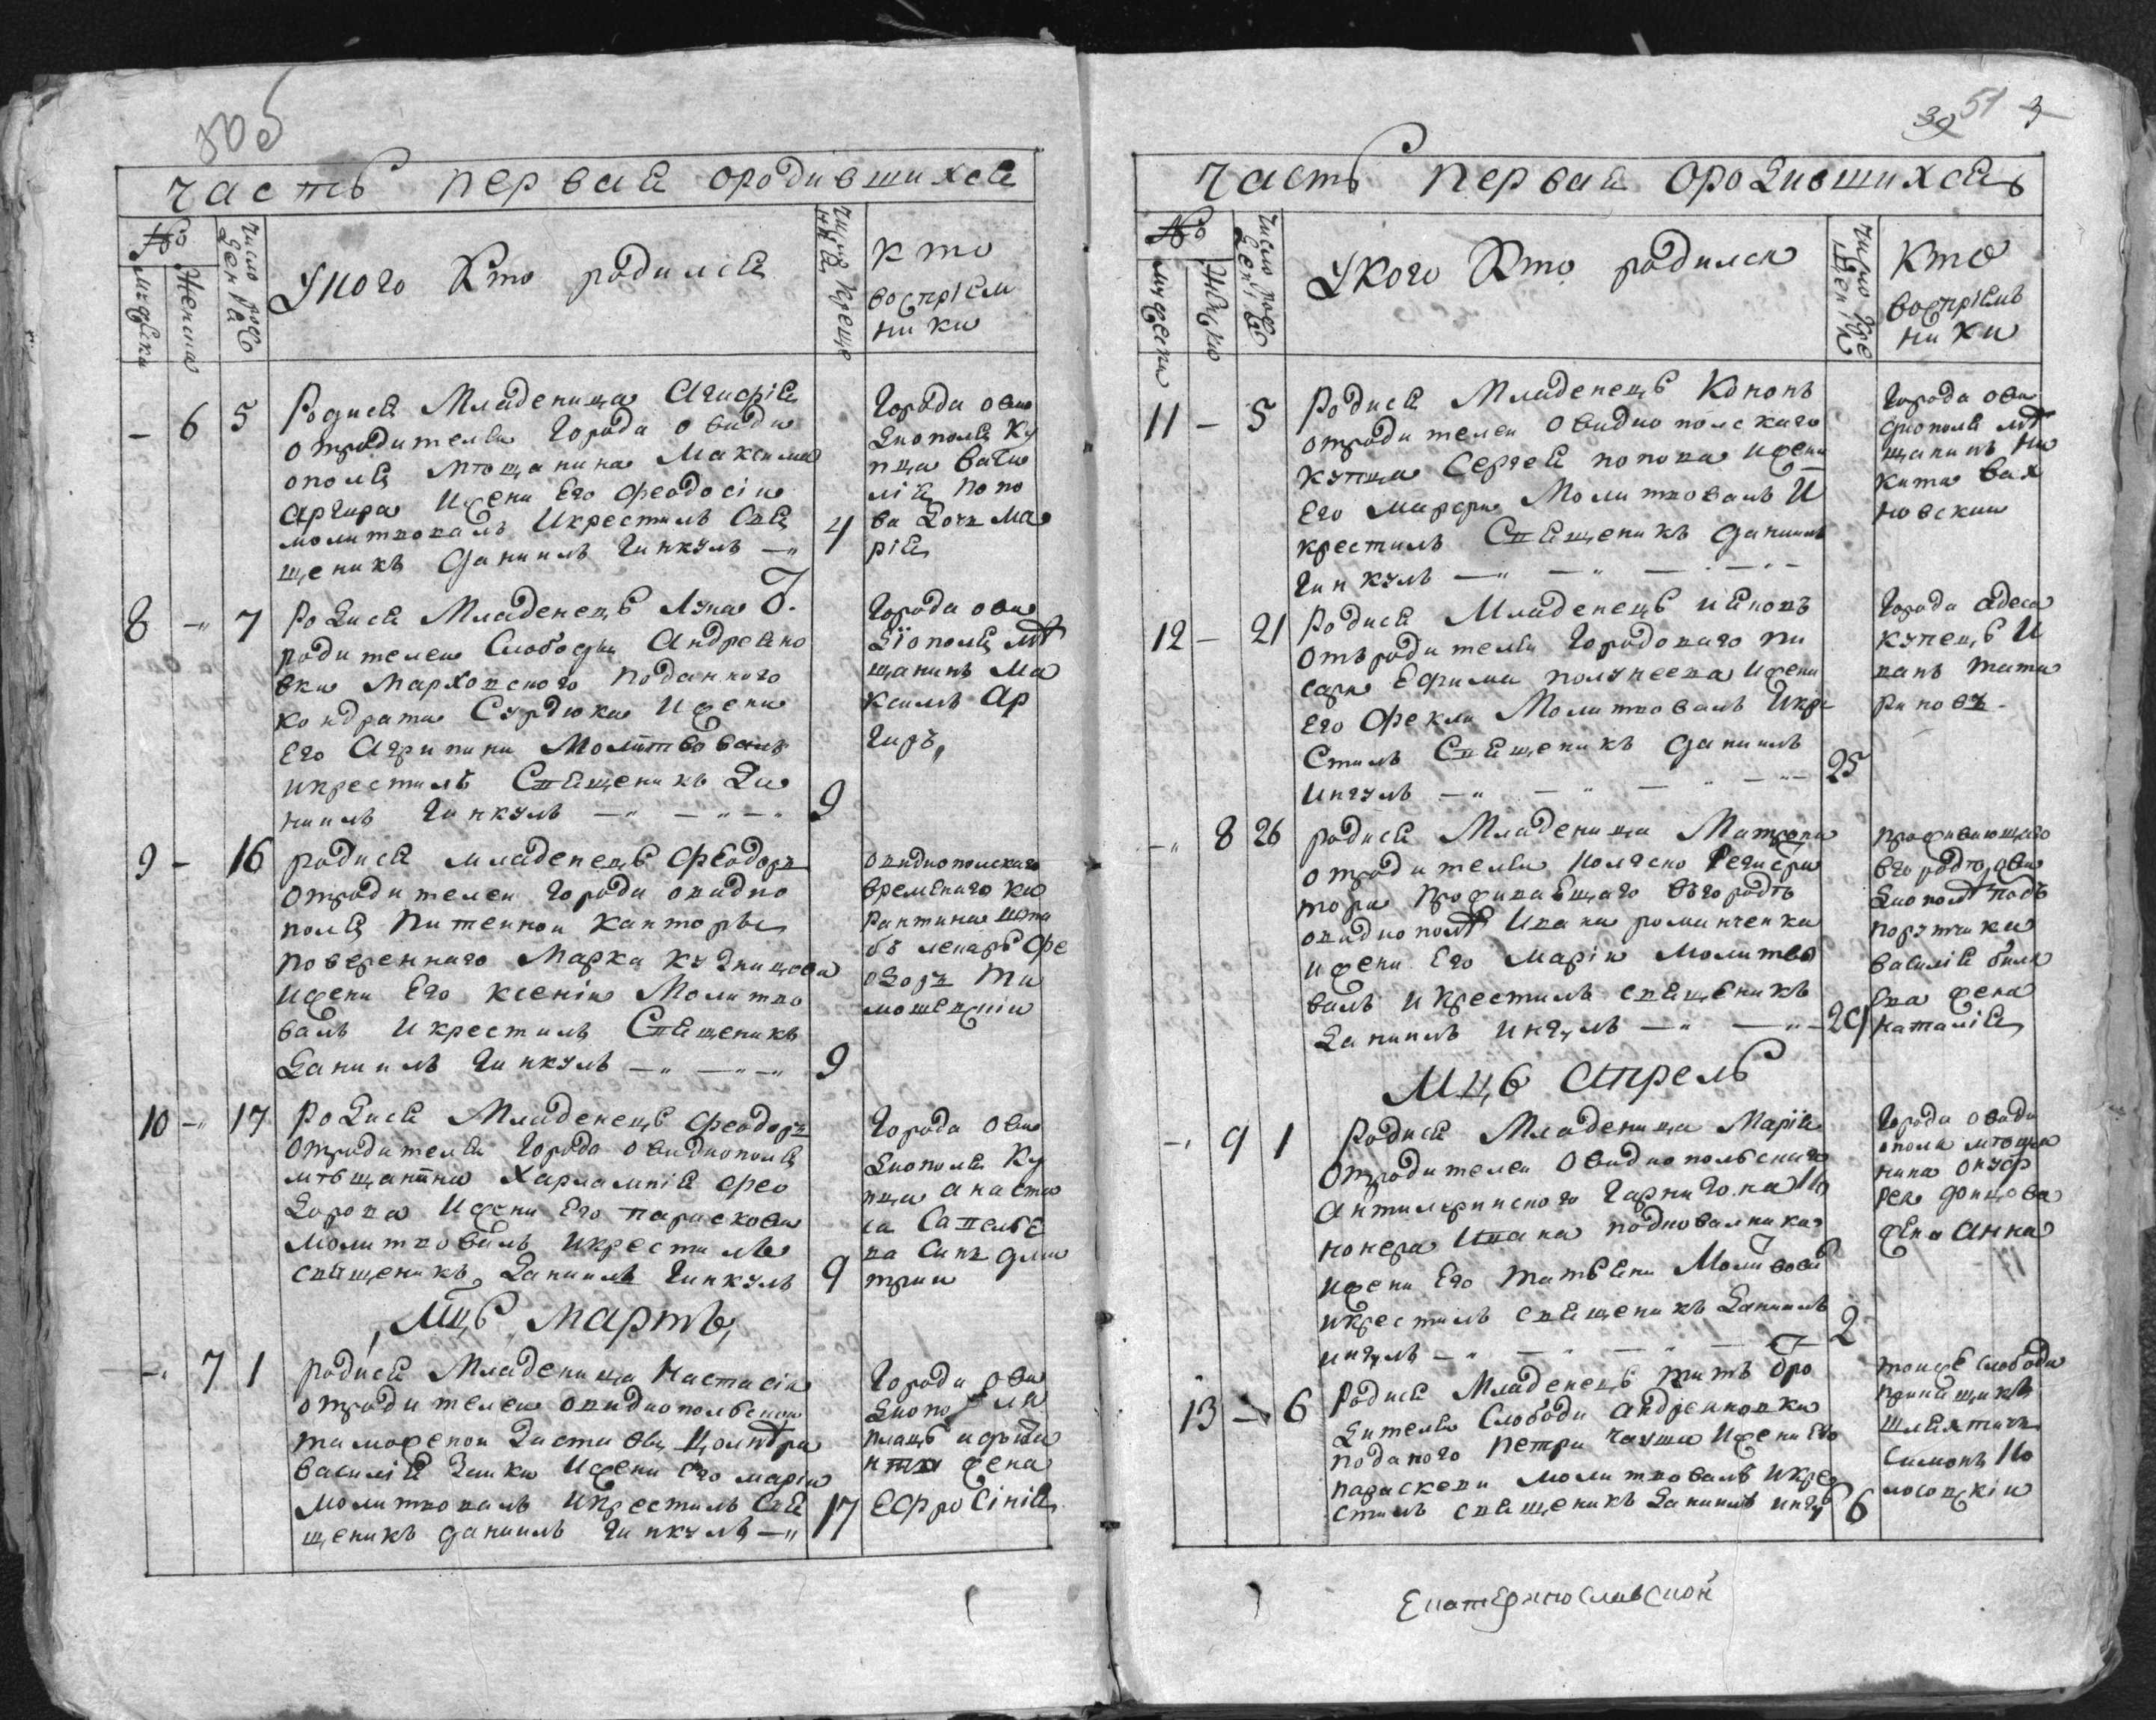 50об
часть первая ородившихся
№
мужска
Женска
число рожденıя
Укого Кто родился
число крещенıя
кто
воспрıем
ники
- 6 5
Родися Младеница Агафıя
отродителей Города Овиди
ополя мѣщанина Максима
Аргира Ижени Его Феодосıи
молитвовалъ Икрестилъ Свя
щеникъ Данıилъ Гинкулъ —„ 4
Города Ови
диополя Ку
пца Васи
лıя Попо
ва дочь Ма
рıя
8 -„ 7
Родися Младенецъ Лука От
родителей Слободы Андреано
вки Марховского Поданного
кондрата Сурдюка Ижени
Его Агрипини Молитвовалъ
икрестилъ Священикъ Да
нıилъ Гинкулъ —„ —„ —„ 9
Города Ови
дıополя мѣ
щанинъ Ма
ксимъ Ар
гиръ,
9 - 16
родися младенецъ Феодоръ
отродителей Города Овидıо
поля Питейной Канторы
повереннаго Марка Кузницова
Ижени Его Ксенıи Молитво
валъ Икрестилъ Священикъ
Данıилъ Гинкулъ —„ —„ —„ 9
овидиопольскаго
временаго ка
рантина шта
бъ лекарь Фе
одоръ Ти
мошевскıи
10 -„ 17
Родися Младенецъ Феодоръ
Отродителей Города Овидиополя
мѣщанина Харлампıя Фео
дорова Ижени Его параскеви
Молитвовалъ Икрестилъ
священикъ Данıилъ Гинкулъ 9
Города Ови
диополя Ку
пца Анаста
са
синъ Дми
трıи
Мцъ Мартъ,
-„ 7 1
родися Младеница Настасıя
отродителей Овидиопольской
таможеной Заставы
Василıя Заики Ижени Его марıи
Молитвовалъ Икрестилъ Свя
щеникъ Данıилъ Гинкулъ —„ 17
Города Ови
диополя
плацъ адъюта
нта жена
Ефросинıя
39 51 3
часть первая ородившихся
№
мужеска
Женско
число рожденıя
Укого Кто родился
число крещенıя
Кто
воспрıемъ
ники
11 - 5
Родися Младенецъ Кононъ
отродителей Овидиопольскаго
купца Сергея попова Ижени
Его Марфи Молитвовалъ И
крестилъ Священикъ Данıилъ
Гинкулъ —„ —„ —„ —
Города Ови
диополя мѣ
щанинъ Ни
кита Вах
новскıи
12 - 21
Родися Младенецъ Иаковъ
Отъродителей Городоваго пи
саря Ефима полунеева Ижени
Его Фекли Молитвовалъ Икре
стилъ Священикъ Данıилъ
Ингулъ —„ —„ —„ — 25
Города Адеса
купецъ И
ванъ тата
риновъ.
-„ 8 26
родися Младеница Матрона
отродителей Колясно Регистра
тора проживающаго вгородѣ
Овидиополѣ Ивана романченка
ижени Его Марıи Молитво
валъ Икрестилъ священикъ
Данıилъ Ингулъ —„ —„ 29
проживающаго
вгородѣ Ови
диополѣ подъ
поручика
Василıя
жена
Наталıя
Мцъ Апрель
-„ 9 1
Родися Младеница Марıя
отродителей Овидиопольскаго
Антилеринского Гарнизона Ка
нонера Ивана подковалникова
Ижени Его Татıяни Молитвовалъ
икрестилъ священикъ Данıилъ
ингулъ —„ —„ —„ — 2
Города Овиди
ополя мѣща
нина онуф
рея Донцова
жена Анна
13 —„ 6
Родися Младенецъ титъ Отро
дителей Слободи Андреановки
поданого Петра Чауша Ижени Его
параскеви молитвовалъ Икре
стилъ священикъ Данıилъ Ингу 6
тоиже слободи
прикащикъ
шляхтичъ
Симонъ Ко
лосовскıи
Екатеринославской